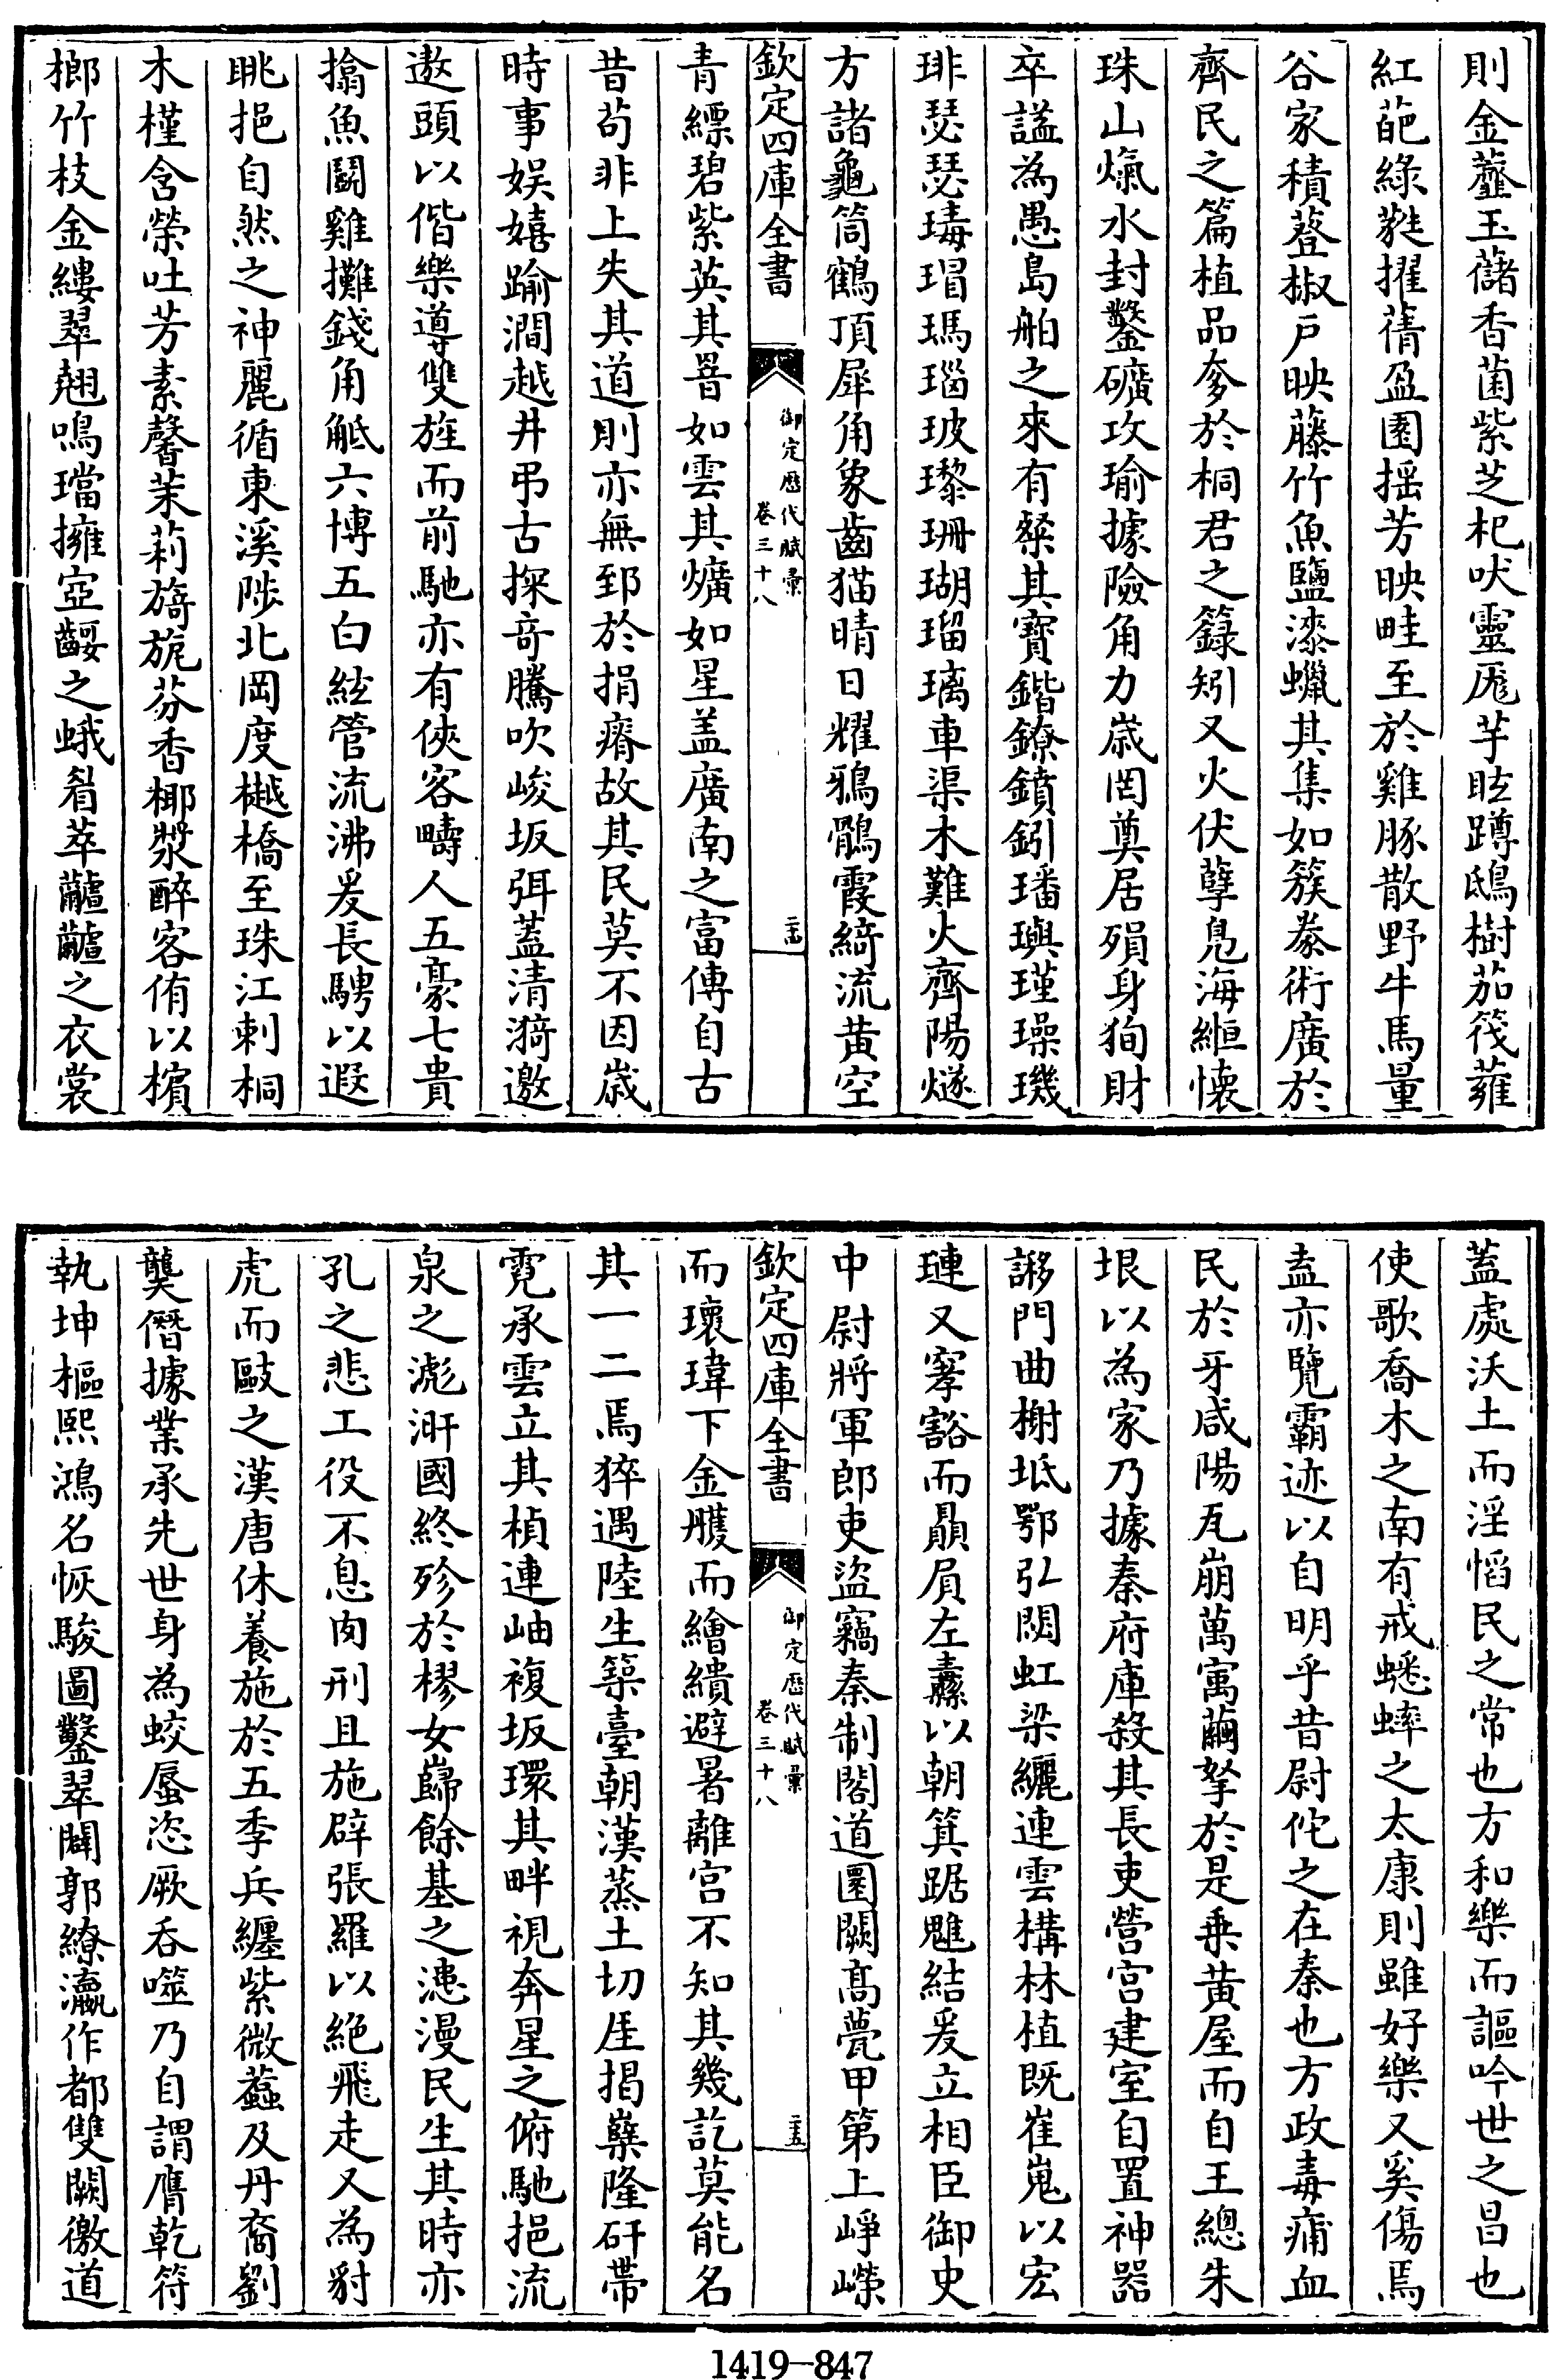 則金虀玉藷香菌紫芝杞吠靈厖芋眩蹲鴟樹茄筏蕹
紅葩綠蕤擢蒨盈園揺芳映畦至於雞豚散野牛馬量
谷家積蔱椒戸映藤竹魚鹽漆蠟其集如簇豢術廣於
齊民之篇植品奓於桐君之籙矧又火伏孽鳬海絙懐
珠山爊水封鑿礦攻瑜據險角力歳罔奠居殞身狥財
卒謚為愚島舶之來有粲其寳鍇鐐鐼鈏璠璵瑾璪璣
琲瑟瑟瑇瑁瑪瑙玻瓈珊瑚瑠璃車渠木難火齊陽燧
方諸龜筒鶴頂犀角象齒猫晴日耀鴉鶻霞綺流黄空
欽定四庫全書
御定歴代賦彚
卷三十八
二十四
青縹碧紫英其暜如雲其爌如星盖廣南之富傳自古
昔苟非上失其道則亦無郅於捐瘠故其民莫不因歳
時事娱嬉踰澗越井弔古探竒騰吹峻坂弭蓋清漪邀
遨頭以偕樂導雙旌而前馳亦有俠客疇人五豪七貴
擒魚鬭雞攤錢角觝六博五白絃管流沸爰長騁以遐
眺挹自然之神麗循東溪陟北岡度樾橋至珠江刺桐
木槿含榮吐芳素馨茉莉旖旎芬香椰漿醉客侑以檳
榔竹枝金縷翠翹鳴璫擁宓齾之蛾眉萃齇齇之衣裳
蓋處沃土而淫慆民之常也方和樂而謳吟世之昌也
使歌喬木之南有戒蟋蟀之太康則雖好樂又奚傷焉
盍亦覽霸迹以自明乎昔尉佗之在秦也方政毒痡血
民於牙咸陽瓦崩萬㝢繭挐於是乗黄屋而自王總朱
垠以為家乃據秦府庫殺其長吏營宫建室自置神器
謻門曲榭坻鄂弘閎虹梁纚連雲構林植既崔嵬以宏
璉又窙豁而贔屓左纛以朝箕踞魋結爰立相臣御史
中尉將軍郎吏盜竊秦制閣道圜闕髙甍甲第上崢嶸
欽定四庫全書
御定歴代賦彚
卷三十八
二十五
而瓌瑋下金雘而繪繢避暑離宫不知其幾訖莫能名
其一二焉猝遇陸生築臺朝漢蒸土切厓揭嶪隆矸帶
霓承雲立其楨連岫複坂環其畔視奔星之俯馳挹流
泉之滮汧國終殄於樛女巋餘基之漶漫民生其時亦
孔之悲工役不息肉刑且施辟張羅以絶飛走又為豺
虎而敺之漢唐休養施於五季兵纒紫微蠚及丹裔劉
龑僭據業承先世身為蛟蜃恣厥呑噬乃自謂膺乾符
執坤樞熙鴻名恢駿圖鑿翠闢郭繚瀛作都雙闕徼道
1419—847